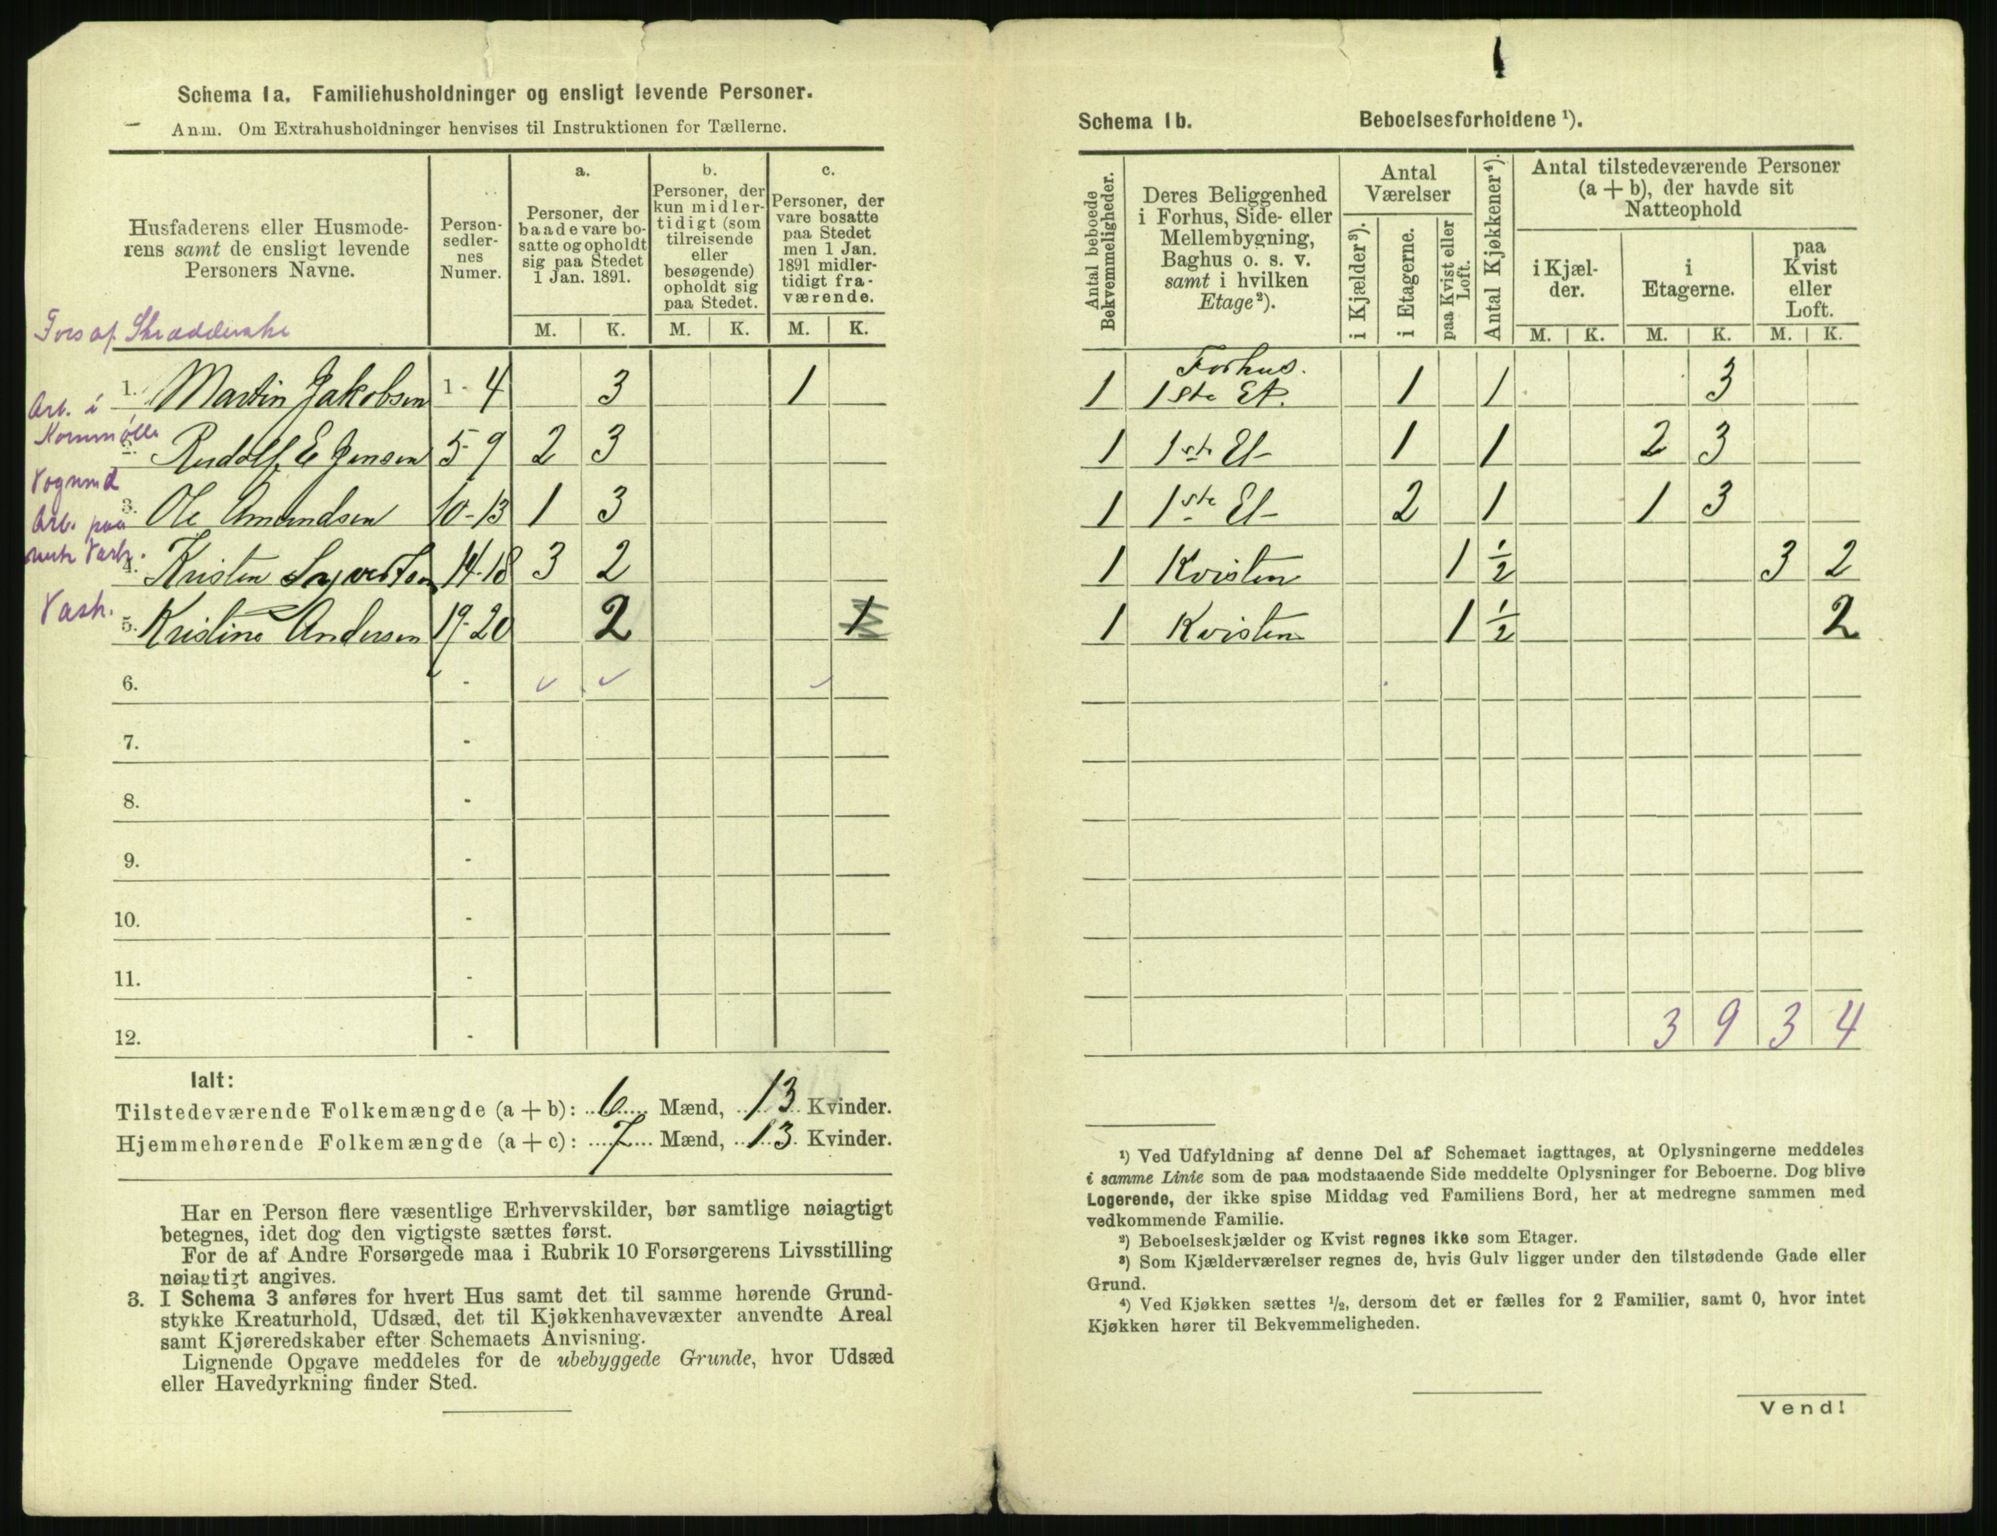 Schema 1a. Familiehusholdninger og ensligt levende Personer.
Anm. Om Extrahusholdninger henvises til Instruktionen for Tællerne.
Husfaderens eller Husmoderens samt de ensligt levende Personers Navne.
Personsedlernes Numer.
a. Personer, der baade vare bosatte og opholdt sig paa Stedet 1 Jan. 1891.
b. Personer, der kun midlertidigt (som tilreisende eller besøgende) opholdt sig paa Stedet.
c. Personer, der vare bosatte paa Stedet men 1 Jan. 1891 midlertidigt fraværende.
M. K. M. K. M. K.
Fors af
1. Martin Jakobsen 1-4 3 1
Arb. i Kornmølle
2. Rudolf E Jensen 5-9 2 3
Vognmd
3. Ole Amundsen 10-13 1 3
Arb. paa mek Værks.
4. Kristen Syvertsen 14-18 3 2
Vask.
5. Kristine Andersen 19-20 2 1
6. -
7. -
8. -
9. -
10. -
11. -
12. -
Ialt:
Tilstedeværende Folkemængde (a + b): 6 Mænd, 13 Kvinder.
Hjemmehørende Folkemængde (a + c): 7 Mænd, 13 Kvinder.
Har en Person flere væsentlige Erhvervskilder, bør samtlige nøiagtigt
betegnes, idet dog den vigtigste sættes først.
For de af Andre Forsørgede maa i Rubrik 10 Forsørgerens Livsstilling
nøiagtigt angives.
3. I Schema 3 anføres for hvert Hus samt det til samme hørende Grund-
stykke Kreaturhold, Udsæd, det til Kjøkkenhavevæxter anvendte Areal
samt Kjøreredskaber efter Schemaets Anvisning.
Lignende Opgave meddeles for de ubebyggede Grunde, hvor Udsæd
eller Havedyrkning finder Sted.
1
Schema 1b. Beboelsesforholdene ¹).
Antal beboede Bekvemmeligheder.
Deres Beliggenhed i Forhus, Side- eller Mellembygning, Baghus o. s. v. samt i hvilken Etage ²).
Antal Værelser
i Kjælder ³).
i Etagerne.
paa Kvist eller Loft.
Antal Kjøkkener ⁴).
Antal tilstedeværende Personer (a + b), der havde sit Natteophold
i Kjælder.
i Etagerne.
paa Kvist eller Loft.
M. K. M. K. M. K.
1 Forhus. 1ste Et. 1 1 3
1 1ste Et 1 1 2 3
1 1ste Et 2 1 1 3
1 Kvisten 1 ½ 3 2
1 Kvisten 1 ½ 2
3 9 3 4
¹) Ved Udfyldning af denne Del af Schemaet iagttages, at Oplysningerne meddeles
i samme Linie som de paa modstaaende Side meddelte Oplysninger for Beboerne. Dog blive
Logerende, der ikke spise Middag ved Familiens Bord, her at medregne sammen med
vedkommende Familie.
²) Beboelseskjælder og Kvist regnes ikke som Etager.
³) Som Kjælderværelser regnes de, hvis Gulv ligger under den tilstødende Gade eller
Grund.
⁴) Ved Kjøkken sættes ½, dersom det er fælles for 2 Familier, samt 0, hvor intet
Kjøkken hører til Bekvemmeligheden.
Vend!